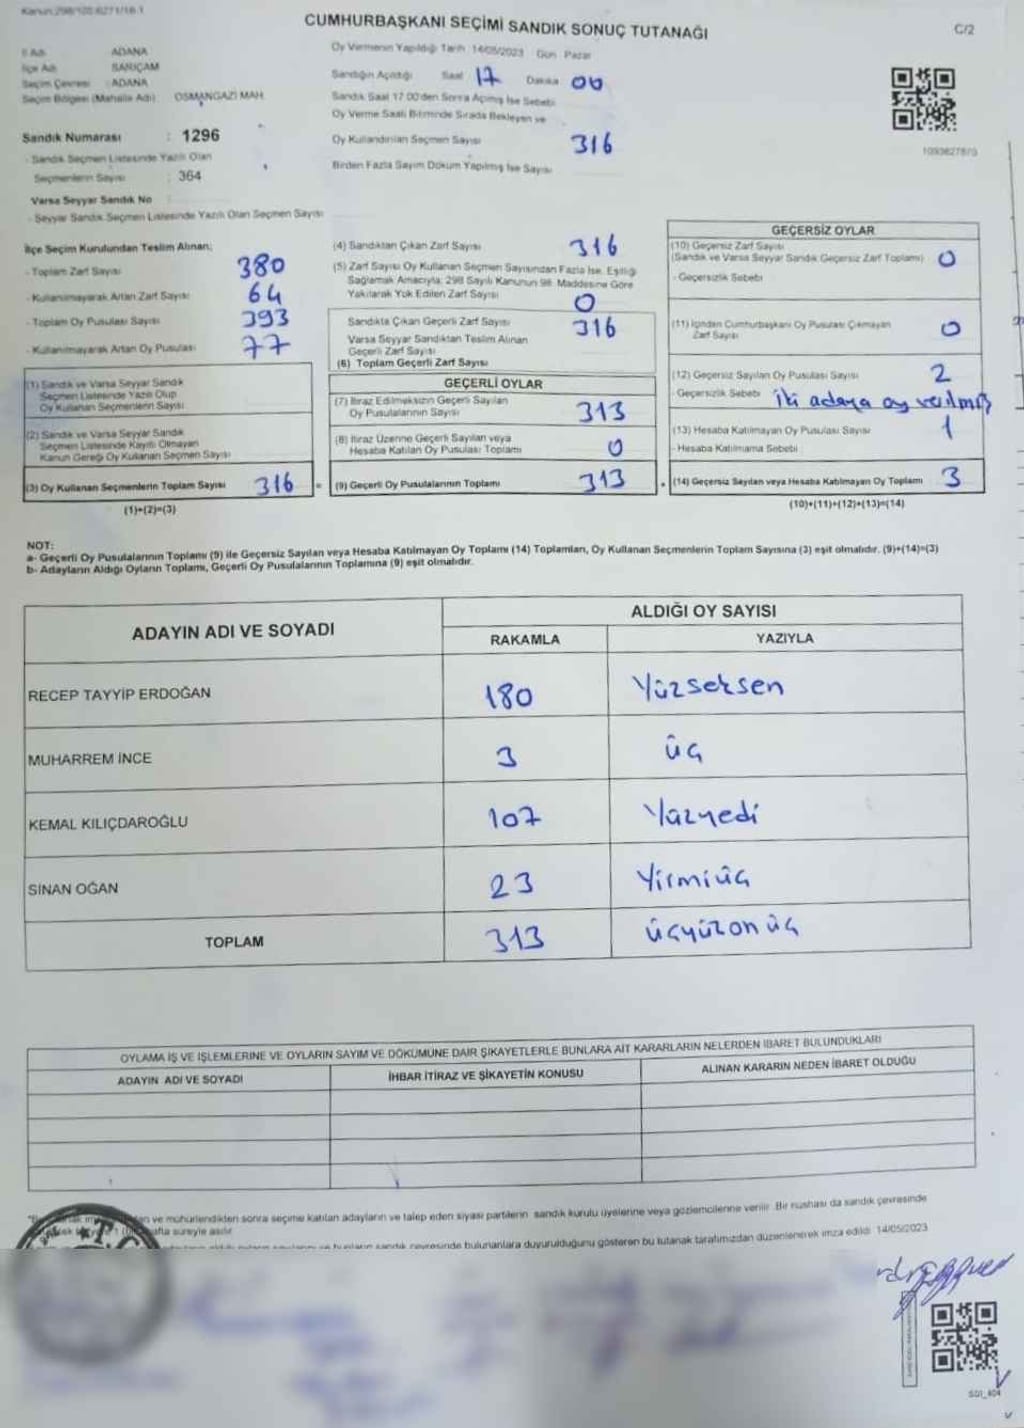 Kanun:298/105.6271/16.1
CUMHURBAŞKANI SEÇİMİ SANDIK SONUÇ TUTANAĞI
C/2
İl Adı ADANA
İlçe Adı SARIÇAM
Seçim Çevresi : ADANA
Seçim Bölgesi (Mahalle Adı) OSMANGAZİ MAH.
Sandık Numarası : 1296
- Sandık Seçmen Listesinde Yazılı Olan
Seçmenlerin Sayısı : 364
Varsa Seyyar Sandık No
- Seyyar Sandık Seçmen Listesinde Yazılı Olan Seçmen Sayısı
Oy Vermenin Yapıldığı Tarih 14/05/2023 Gün Pazar
Sandığın Açıldığı Saat 17 Dakika 00
Sandık Saat 17.00'den Sonra Açılmış İse Sebebi
Oy Verme Saati Bitiminde Sırada Bekleyen ve
Oy Kullandırılan Seçmen Sayısı 316
Birden Fazla Sayım Döküm Yapılmış İse Sayısı
1093627870
İlçe Seçim Kurulundan Teslim Alınan;
- Toplam Zarf Sayısı 380
- Kullanılmayarak Artan Zarf Sayısı 64
- Toplam Oy Pusulası Sayısı 393
- Kullanılmayarak Artan Oy Pusulası 77
(1) Sandık ve Varsa Seyyar Sandık
Seçmen Listesinde Yazılı Olup
Oy Kullanan Seçmenlerin Sayısı
(2) Sandık ve Varsa Seyyar Sandık
Seçmen Listesinde Kayıtlı Olmayan
Kanun Gereği Oy Kullanan Seçmen Sayısı
(3) Oy Kullanan Seçmenlerin Toplam Sayısı 316
(1)+(2)=(3)
(4) Sandıktan Çıkan Zarf Sayısı 316
(5) Zarf Sayısı Oy Kullanan Seçmen Sayısından Fazla İse, Eşitliği
Sağlamak Amacıyla; 298 Sayılı Kanunun 98. Maddesine Göre
Yakılarak Yok Edilen Zarf Sayısı 0
Sandıkta Çıkan Geçerli Zarf Sayısı 316
Varsa Seyyar Sandıktan Teslim Alınan
Geçerli Zarf Sayısı
(6) Toplam Geçerli Zarf Sayısı
GEÇERLİ OYLAR
(7) İtiraz Edilmeksizin Geçerli Sayılan
Oy Pusulalarının Sayısı 313
(8) İtiraz Üzerine Geçerli Sayılan veya
Hesaba Katılan Oy Pusulası Toplamı 0
= (9) Geçerli Oy Pusulalarının Toplamı 313
GEÇERSİZ OYLAR
(10) Geçersiz Zarf Sayısı
(Sandık ve Varsa Seyyar Sandık Geçersiz Zarf Toplamı) 0
- Geçersizlik Sebebi
(11) İçinden Cumhurbaşkanı Oy Pusulası Çıkmayan
Zarf Sayısı 0
(12) Geçersiz Sayılan Oy Pusulası Sayısı 2
- Geçersizlik Sebebi iki adaya oy verilmiş
(13) Hesaba Katılmayan Oy Pusulası Sayısı 1
- Hesaba Katılmama Sebebi
+ (14) Geçersiz Sayılan veya Hesaba Katılmayan Oy Toplamı 3
(10)+(11)+(12)+(13)=(14)
NOT:
a- Geçerli Oy Pusulalarının Toplamı (9) ile Geçersiz Sayılan veya Hesaba Katılmayan Oy Toplamı (14) Toplamları, Oy Kullanan Seçmenlerin Toplam Sayısına (3) eşit olmalıdır. (9)+(14)=(3)
b- Adayların Aldığı Oyların Toplamı, Geçerli Oy Pusulalarının Toplamına (9) eşit olmalıdır.
ADAYIN ADI VE SOYADI
ALDIĞI OY SAYISI
RAKAMLA YAZIYLA
RECEP TAYYİP ERDOĞAN 180 Yüzseksen
MUHARREM İNCE 3 üç
KEMAL KILIÇDAROĞLU 107 Yüzyedi
SİNAN OĞAN 23 Yirmiüç
TOPLAM 313 üçyüzonüç
OYLAMA İŞ VE İŞLEMLERİNE VE OYLARIN SAYIM VE DÖKÜMÜNE DAİR ŞİKAYETLERLE BUNLARA AİT KARARLARIN NELERDEN İBARET BULUNDUKLARI
ADAYIN ADI VE SOYADI İHBAR İTİRAZ VE ŞİKAYETİN KONUSU ALINAN KARARIN NEDEN İBARET OLDUĞU
ve mühürlendikten sonra seçime katılan adayların ve talep eden siyasi partilerin sandık kurulu üyelerine veya gözlemcilerine verilir. Bir nüshası da sandık çevresinde
hafta süreyle asılır.
sandık çevresinde bulunanlara duyurulduğunu gösteren bu tutanak tarafımızdan düzenlenerek imza edildi. 14/05/2023
T.C.